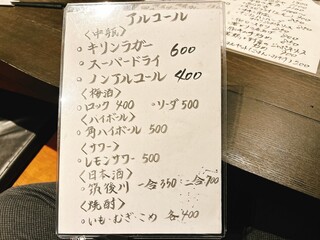 アルコール
〈中瓶〉
○キリンラガー 600
○スーパードライ
○ノンアルコール 400
〈梅酒〉
○ロック 400 ○ソーダ 500
〈ハイボール〉
○角ハイボール 500
〈サワー〉
○レモンサワー 500
〈日本酒〉
○筑後川 一合350 二合700
〈焼酎〉
○いも・むぎ・こめ 各400